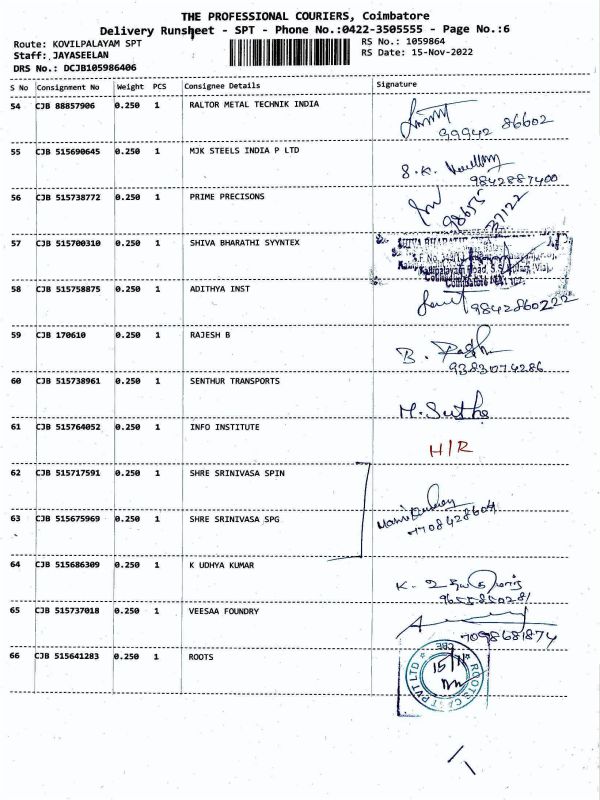 THE PROFESSIONAL COURIERS, Coimbatore
Delivery Runsheet - SPT - Phone No.:0422-3505555 - Page No.:6
Route: KOVILPALAYAM SPT
RS No.: 1059864
Staff: JAYASEELAN
RS Date: 15-Nov-2022
DRS No.: DCJB105986406
S No Consignment No Weight PCS Consignee Details Signature
54 CJB 88857906 0.250 1 RALTOR METAL TECHNIK INDIA
99942 86602
55 CJB 515690645 0.250 1 MJK STEELS INDIA P LTD
S.K.
9842887400
56 CJB 515738772 0.250 1 PRIME PRECISONS
98655 37122
57 CJB 515700310 0.250 1 SHIVA BHARATHI SYYNTEX
SHIVA BHARATHI
S.F. No.
Kalipalayam Road, S.S. Kulam (Via),
Coimbatore
58 CJB 515758875 0.250 1 ADITHYA INST
9842860222
59 CJB 170610 0.250 1 RAJESH B
B.
9383074286
60 CJB 515738961 0.250 1 SENTHUR TRANSPORTS
M. Suthe
61 CJB 515764052 0.250 1 INFO INSTITUTE
H/R
62 CJB 515717591 0.250 1 SHRE SRINIVASA SPIN
63 CJB 515675969 0.250 1 SHRE SRINIVASA SPG
7708428604
64 CJB 515686309 0.250 1 K UDHYA KUMAR
K.
9655850281
65 CJB 515737018 0.250 1 VEESAA FOUNDRY
7098681874
66 CJB 515641283 0.250 1 ROOTS
ROOTS CAST PVT LTD
CBE
15/11